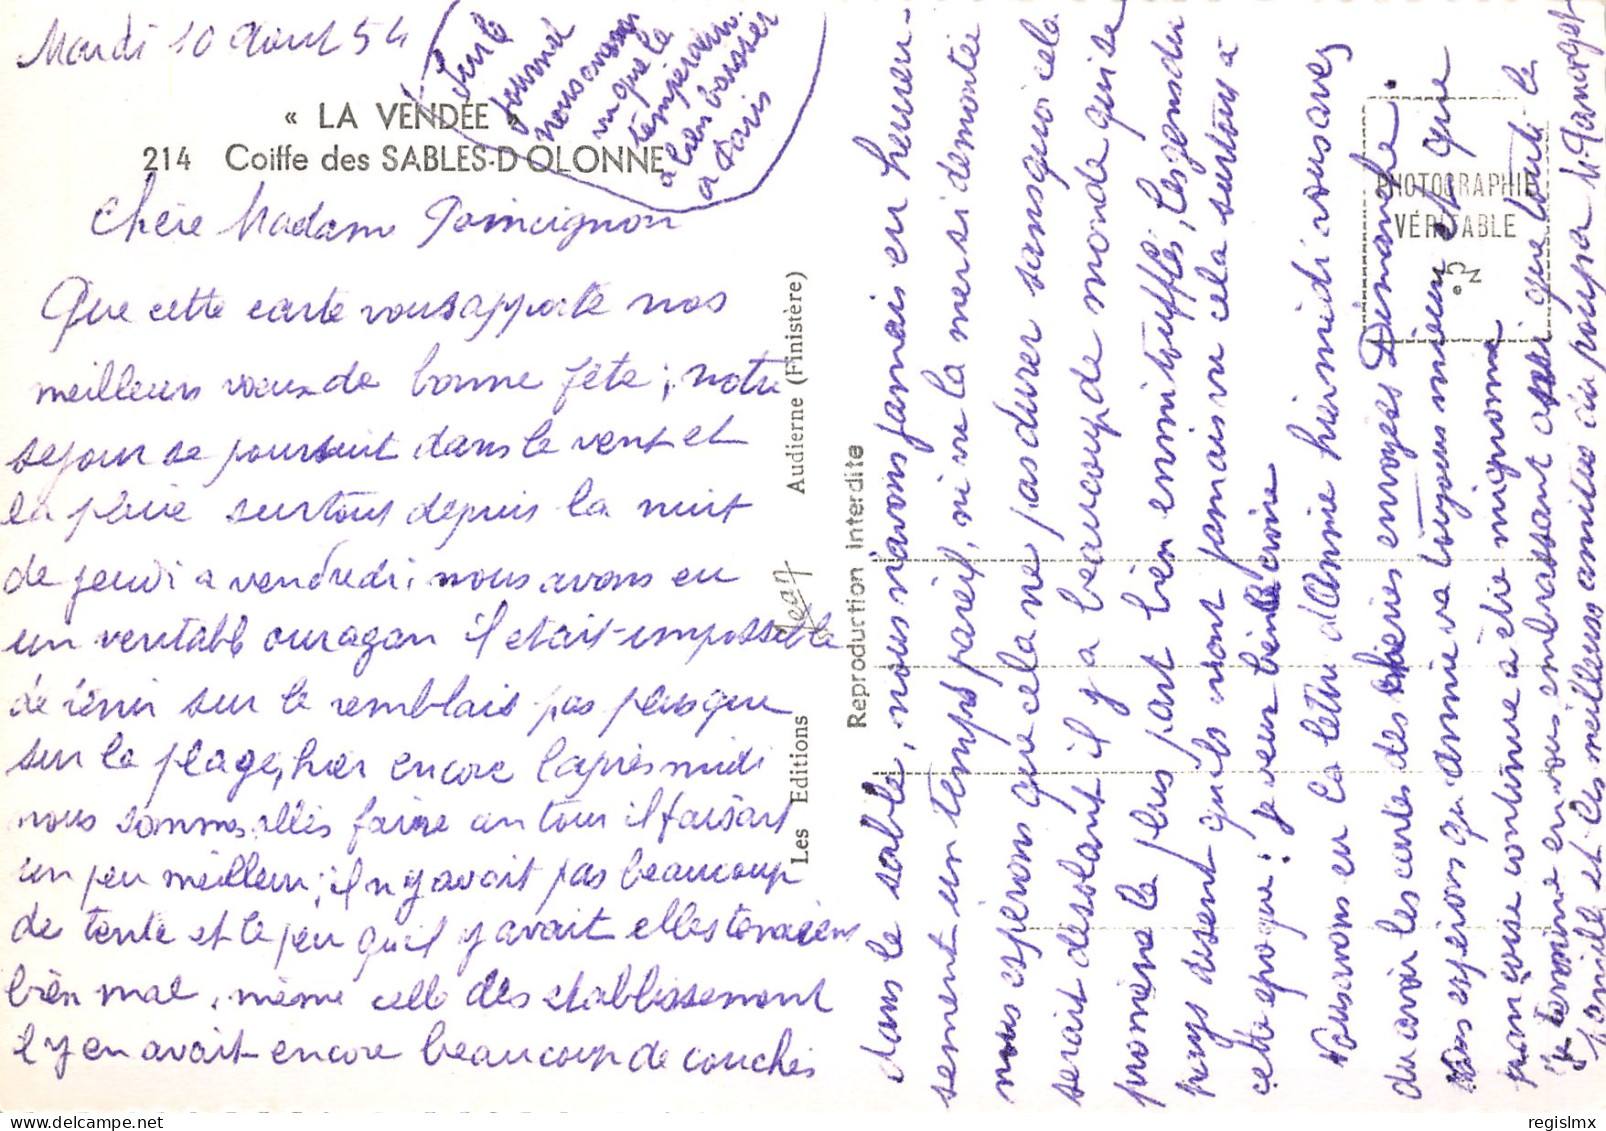 Mardi 10 Aout 54
Sur le
journal
nous avons
vu que la
température
a bien baissé
a Paris
« LA VENDÉE »
214 Coiffe des SABLES-D'OLONNE
Chère Madame Poincignon
Que cette carte vous apporte nos
meilleurs voeux de bonne fête, notre
sejour se poursuit dans le vent et
la pluie surtout depuis la nuit
de jeudi a vendredi, nous avons eu
un veritable ouragan il etait impossible
de tenir sur le remblais pas plus que
sur la plage, hier encore l'apres midi
nous sommes allés faire un tour il faisait
un peu meilleur, il n'y avait pas beaucoup
de tente et le peu qu'il y avait elles tenaient
bien mal, même celle des etablissement
il y en avait encore beaucoup de couchés
Les Editions Audierne (Finistère)
Reproduction interdite
dans le sable, nous n'avons jamais eu heureu-
sement un temps pareil, ni vu la mer si demontée
nous esperons que cela ne pas durer sans quoi cela
serait desolant il y a beaucoup de monde qui se
promène la plus part bien emmitoufflés, les gens du
pays disent qu'ils n'ont jamais vu cela surtout à
cette epoque ! je veux bien le croire
Nous avons eu la lettre d'Annie hier midi vous avez
du avoir les cartes des chéries envoyées Dimanche.
Nous espérons qu'Annie va toujours mieux et que
Françoise continue a être mignonne
Je termine en vous embrassant ainsi que toute la
famille et les meilleurs amitiés du poupa
PHOTOGRAPHIE
VÉRITABLE
N°
regislmx